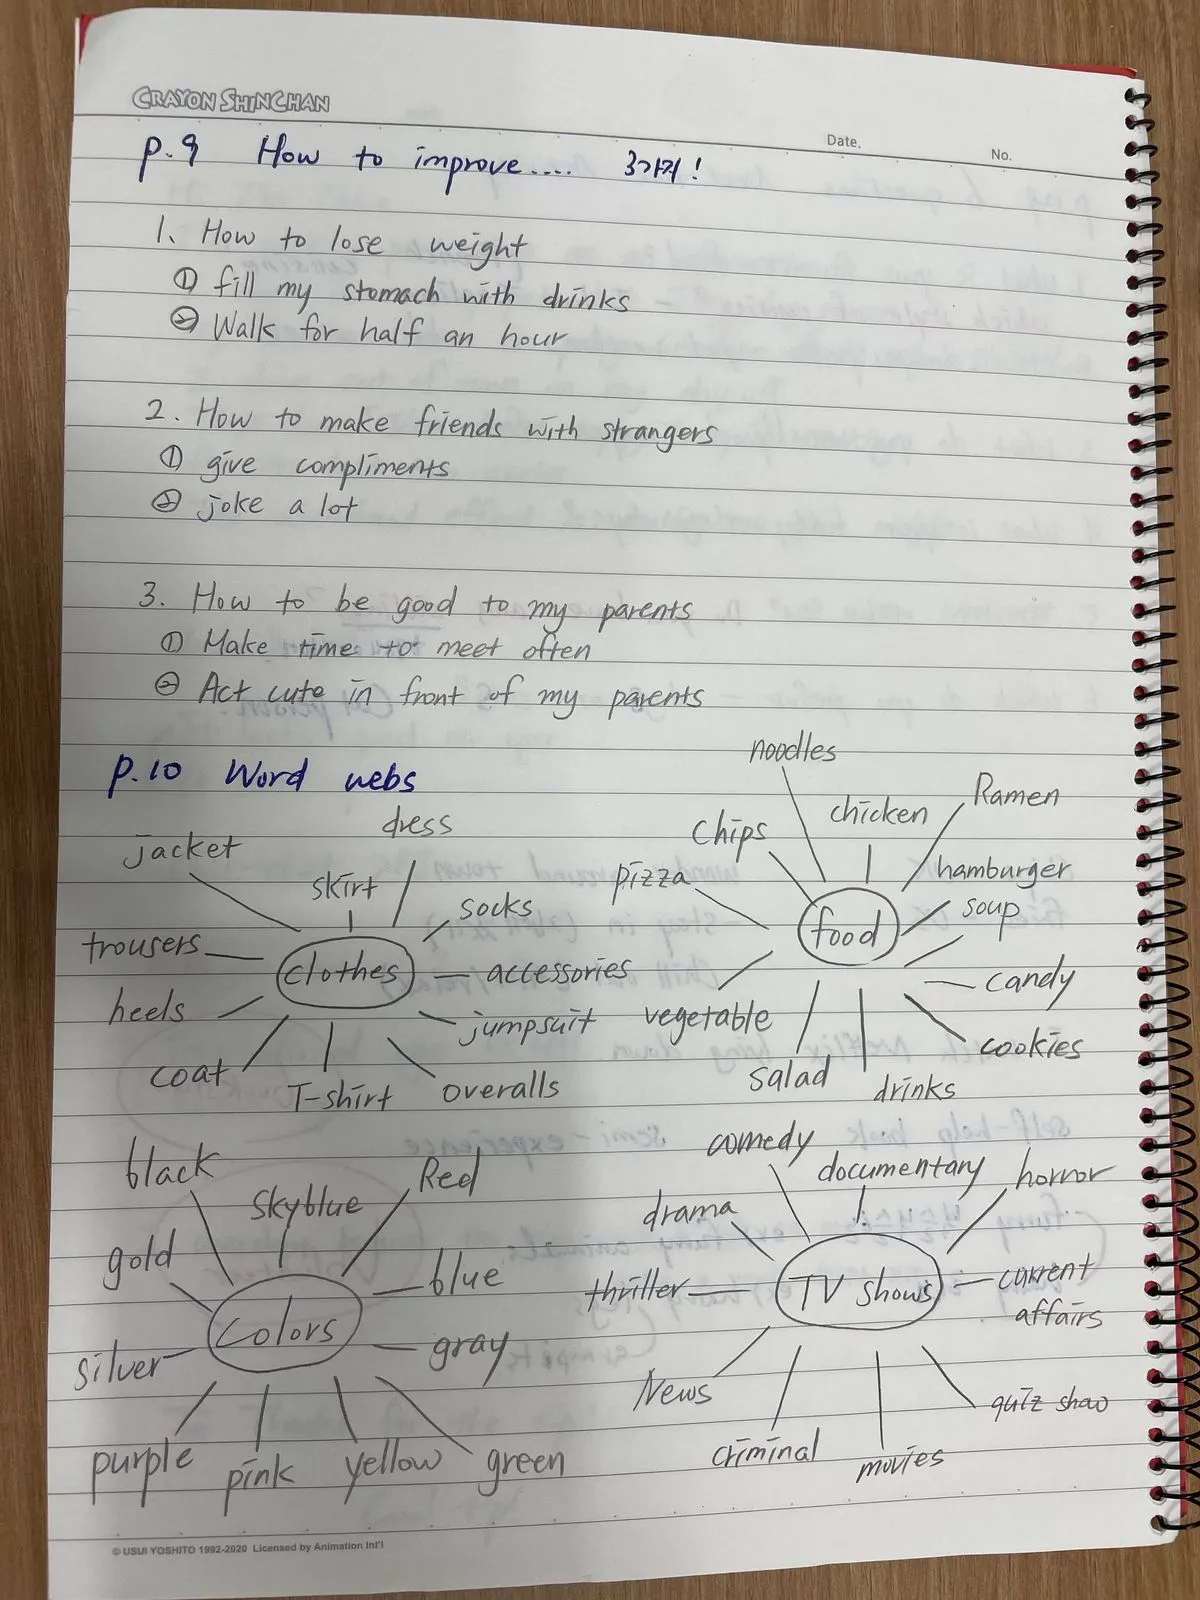 CRAYON SHINCHAN
Date.
No.
p.9 How to improve.... 3가지!
1. How to lose weight
① fill my stomach with drinks
② Walk for half an hour
2. How to make friends with strangers
① give compliments
② joke a lot
3. How to be good to my parents
① Make time to meet often
② Act cute in front of my parents
p.10 Word webs
clothes
jacket
skirt
dress
socks
accessories
jumpsuit
overalls
T-shirt
coat
heels
trousers
food
noodles
chicken
Ramen
hamburger
soup
candy
cookies
drinks
salad
vegetable
pizza
chips
colors
black
skyblue
Red
blue
gray
green
yellow
pink
purple
silver
gold
TV shows
comedy
documentary
horror
current
affairs
quiz show
movies
criminal
News
thriller
drama
© USUI YOSHITO 1992-2020 Licensed by Animation Int'l